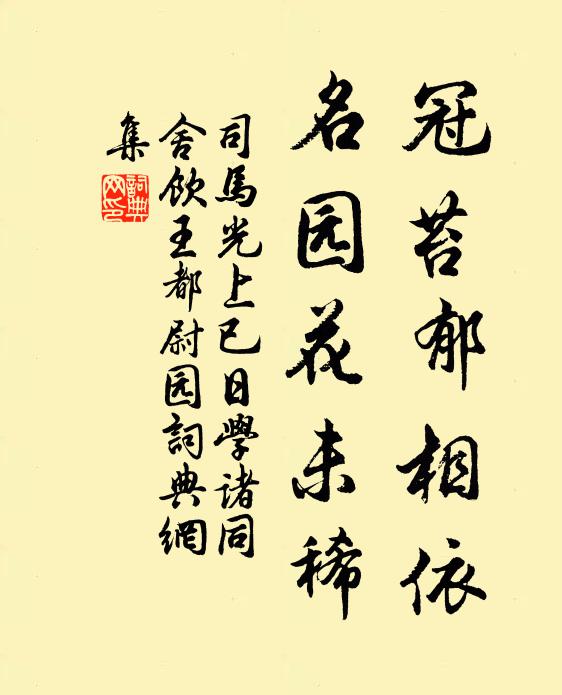 冠苔郁相依
名园花未稀
司馬光上巳日學諸同
舍飲王都尉园詞典網
集
詞典网印